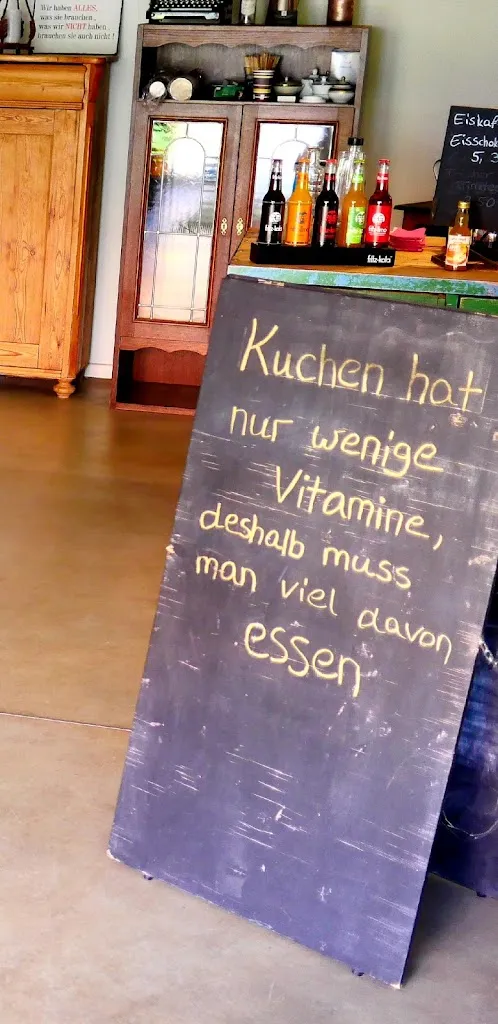 Wir haben ALLES,
was sie brauchen,
was wir NICHT haben,
brauchen sie auch nicht!
Eiskaf
Eisschok
5, 3
50
fritz-kola
Kuchen hat
nur wenige
Vitamine,
deshalb muss
man viel davon
essen